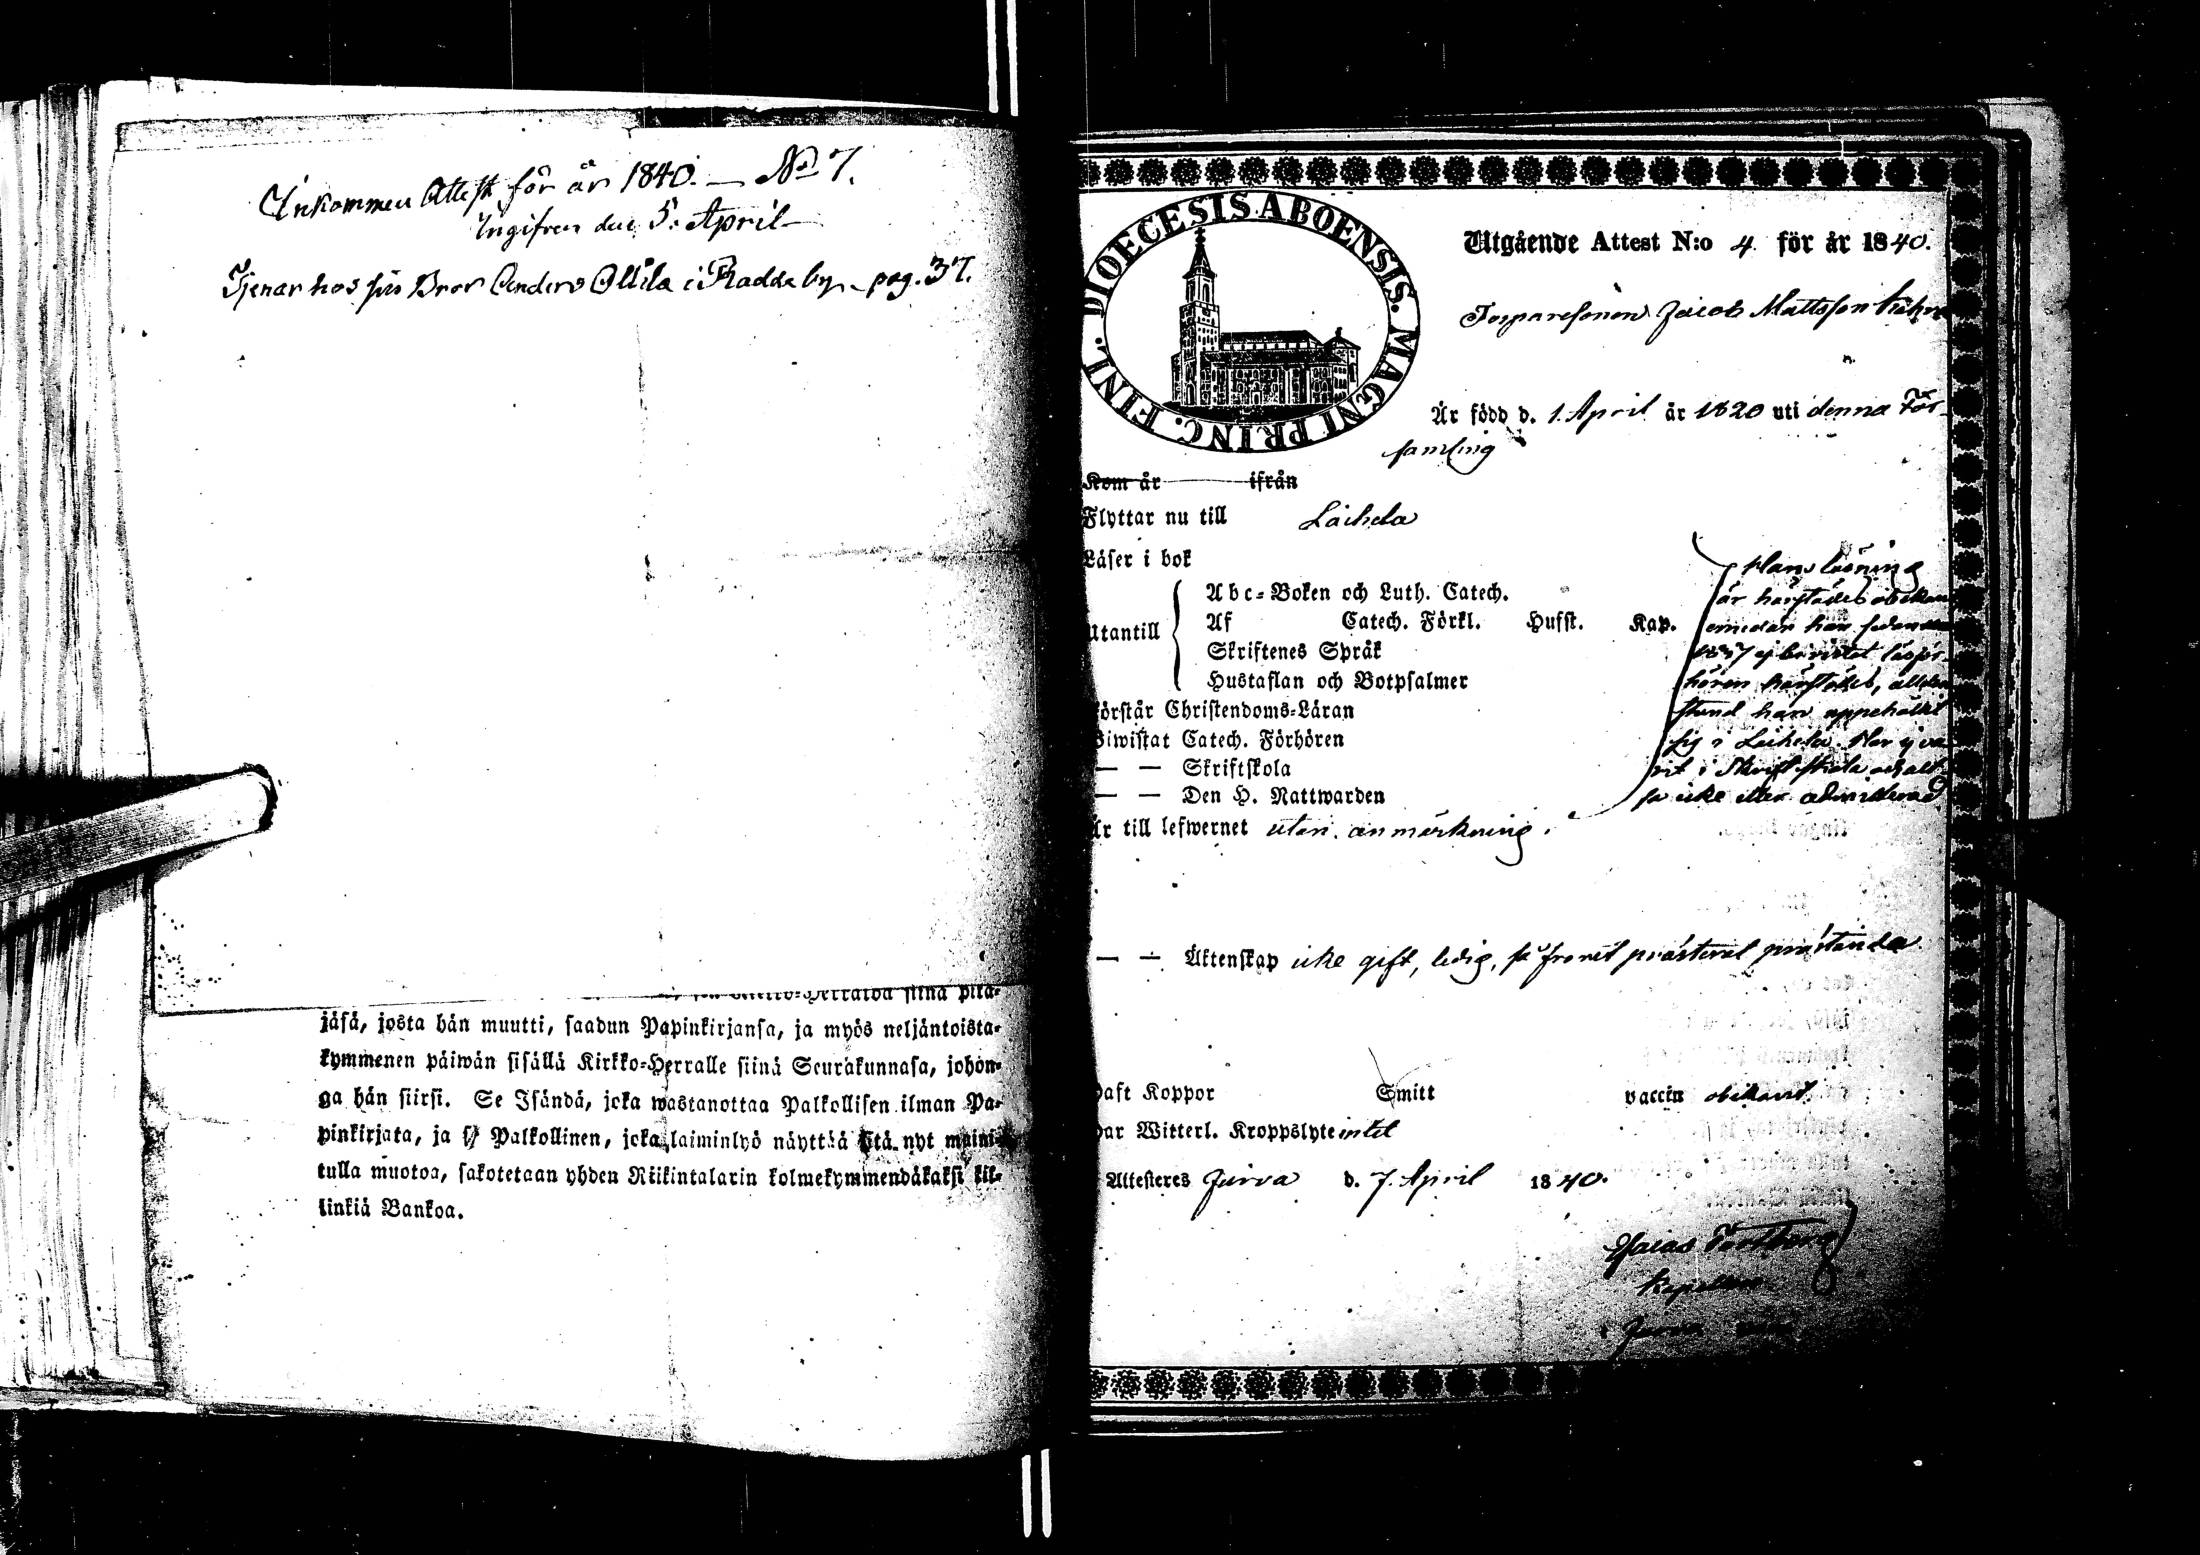 Inkommen Attest för år 1840. — No 7.
Ingifven den 5. April
Tjenar hos sin Bror Anders Ollila i Radda by – pag. 37.
jäsä, josta hän muutti, saadun Papinkirjansa, ja myös neljäntoista-
kymmenen päiwän sisällä Kirkko-Herralle siinä Seurakunnasa, johon-
ga hän siirsi. Se Isändä, joka wastanottaa Palkollisen ilman Pa-
pinkirjata, ja se Palkollinen, joka laiminlyö näyttää sitä nyt maini-
tulla muotoa, sakotetaan yhden Riikintalarin kolmekymmendäkaksi kil-
linkiä Bankoa.
DIOECESIS ABOENSIS. MAGNI PRINC. FINL.
Utgående Attest N:o 4 för år 1840.
Torparesonen Jacob Mattsson
Är född d. 1. April år 1820 uti denna För-
samling
Kom år ifrån
Flyttar nu till Laihela
Läser i bok
Abc-Boken och Luth. Catech.
Utantill Af Catech. Förkl. Husst. Kap.
Skriftenes Språk
Hustaflan och Botpsalmer
Förstår Christendoms-Läran
Biwistat Catech. Förhören
— — Skriftskola
— — Den H. Nattwarden
Hans läsning
är härstädes obekant
emedan han sedan
1837 ej bevistat läsför-
hören härstädes,
stund han uppehållit
sig i Laihela. Har ej va-
rit i Skriftskola och alt-
så icke eller admitterad
Är till lefwernet utan anmärkning.
— — Äktenskap icke gift, ledig, så framt prästeriet
haft Koppor Smitt vaccin obekant.
har Witterl. Kroppslyte intet
Attesteres Jurva d. 7. April 1840.
Esaias
Kapellan
i Jurva